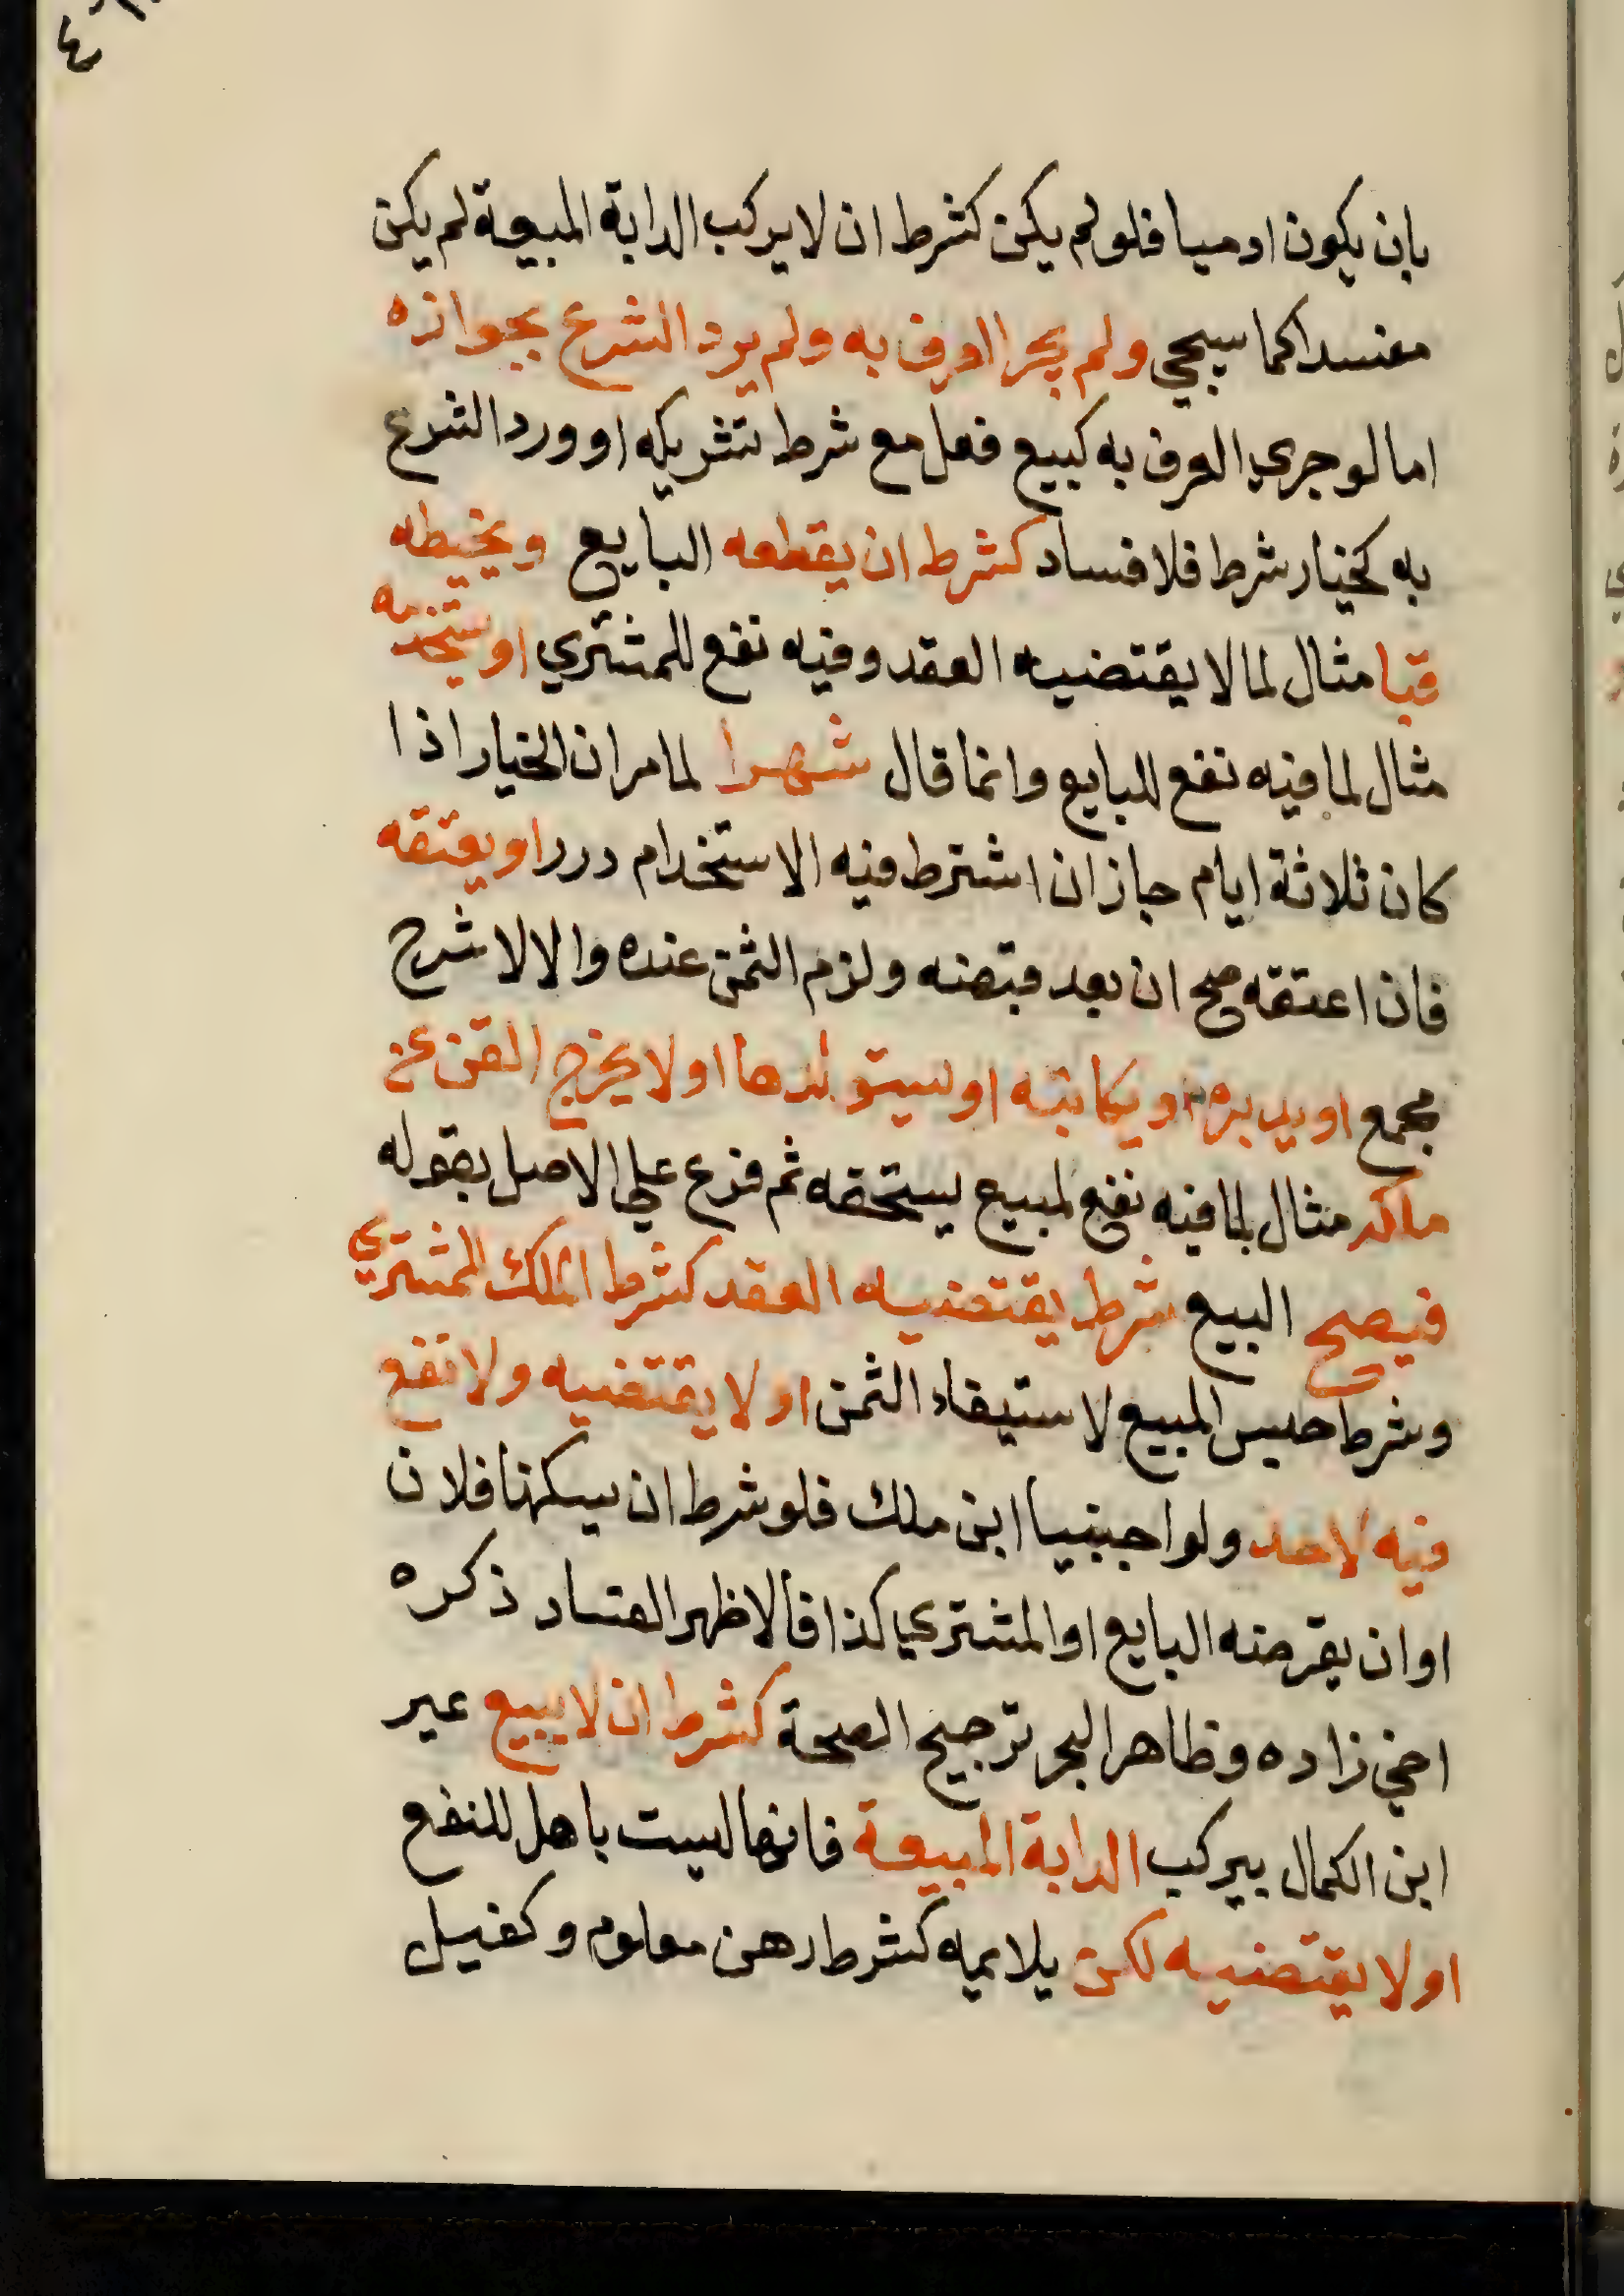 ٤
بان يكون ادميا فلو لم يكن كشرط ان لا يركب الدابة المبيعة لم يكن
مفسدا كما سيجي ولم يجر العرف به ولم يرد الشرع بجوازه
اما لو جري العرف به كبيع فعل مع شرط تشريكه او ورد الشرع
به كخيار شرط فلا فساد كشرط ان يقطعه البايع ويخيطه
قبا مثال لما لا يقتضيه العقد وفيه نفع للمشتري او يستخدمه
مثال لما فيه نفع للبايع وانما قال شهرا لما مر ان الخيار اذا
كان ثلاثة ايام جاز ان اشترط فيه الاستخدام درر او يعتقه
فان اعتقه صح ان بعد قبضه ولزم الثمن عنده والا لا شرح
مجمع او يدبره او يكاتبه او يستولدها او لا يخرج القن عن
ملكه مثال لما فيه نفع لمبيع يستحقه ثم فرع علي الاصل بقوله
فيصح البيع بشرط يقتضيه العقد كشرط الملك للمشتري
وشرط حبس المبيع لاستيفاء الثمن او لا يقتضيه ولا نفع
فيه لاحد ولو اجنبيا ابن ملك فلو شرط ان يسكنها فلان
او ان يقرضه البايع او المشتري كذا فالاظهر الفساد ذكره
اخي زاده وظاهر البحر ترجيح الصحة كشرط ان لا يبيع عبر
ابن الكمال بيركب الدابة المبيعة فانها ليست باهل للنفع
او لا يقتضيه لكن يلايمه كشرط رهن معلوم وكفيل